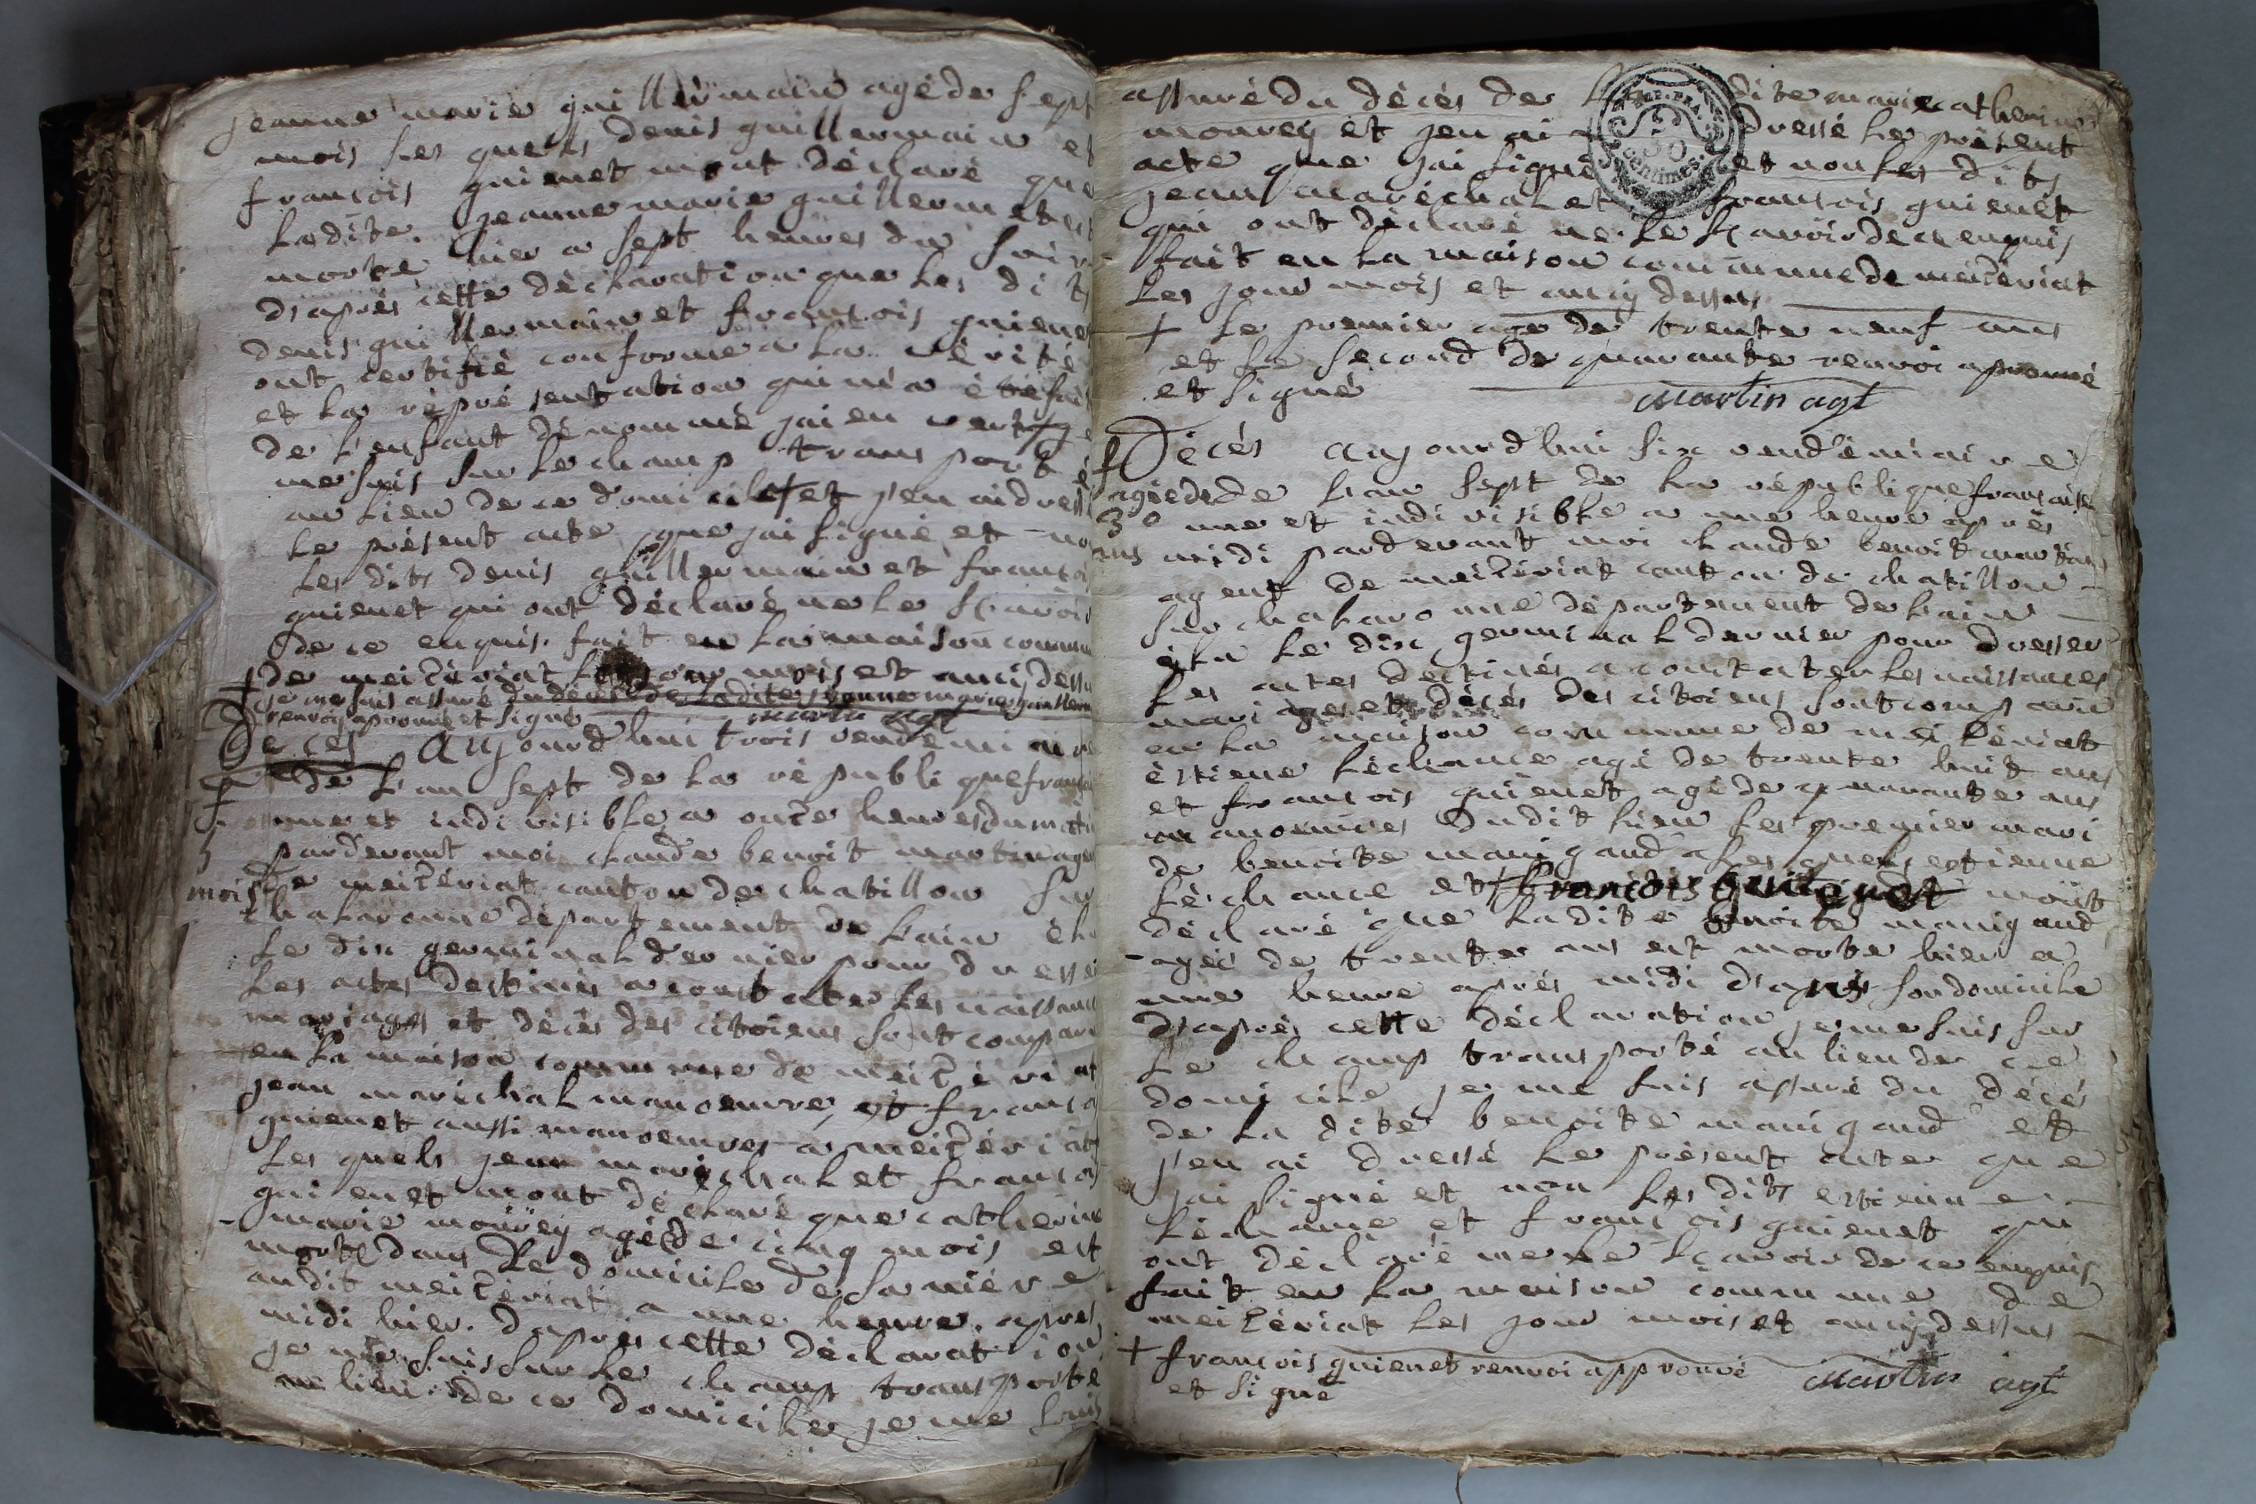 jeanne marie guillermain agé de sept
mois les quels denis guillermain et
françois guienet mont déclaré que
ladite jeanne marie guillermet est
morte hier a sept heures du soir
dsaprés cette déclaration que les dits
denis guillermain et françois guienet
ont certifié conforme a la vérité
et la réprésentation qui m'a été fait
de l'enfant dénommé jai en
me suis sur le champ transporté
au lieu de ce domicile + et j'en ai dressé
le présent acte que jai signé et non
les dits denis guillermain et françois
guienet qui ont déclaré ne le sçavoir
de ce enquis. fait en la maison commune
de meizériat les jour mois et an cy dessus
+ je me suis assuré du décés de ladite jeanne marie guillerm
renvoi aprouvé et signé martin agt
Décés Aujourd'hui trois vendémiaire
de l'an sept de la république françai
une et indivisible a onze heures du mati
3 pardevant moi claude benoit martin agen
mois de meizériat canton de chatillon sur
chalaronne département de l'ain élu
le dix germinal dernier pour dresser
les actes destinés a constater les naissances
mariages et décés des citoiens sont comparu
en la maison commune de meizériat
jean maréchal manoeuvre, et françois
guienet aussi manoeuvre a meizériat
les quels jean maréchal et françois
guienet mont déclaré que catherine
marie mourey agée de cinq mois est
morte dans le domicile de sa mére
audit meizériat a une heure aprés
midi hier. dsaprés cette déclaration
je me suis sur le champ transporté
au lieu de ce domicile je me suis
assuré du décés de ladite marie catherine
mourey et jen ai dressé le présent
acte que jai signé et non les dits
jean maréchal et françois guienet
qui ont déclaré ne le sçavoir de ce enquis
fait en la maison commune de meizériat
les jour mois et an cy dessus
+ le premier agé de trente neuf ans
et le second de quarante renvoi aprouvé
et signé martin agt
50 centimes.
Décés Aujourd'hui six vendémiaire
f agée de de l'an sept de la république française
30 une et indivisible a une heure aprés
ans midi pardevant moi claude benoit martin
agent de meizériat canton de chatillon
sur chalaronne département de l'ain
élu le dix germinal dernier pour dresser
les actes destinés a constater les naissances
mariages et décés des citoiens sont comparu
en la maison commune de meizériat
éstiene léchance agé de trente huit ans
et françois guienet agé de quarante ans
manoeuvres dudit lieu les premier mari
de benoite manigand lesquels estienne
léchance et + françois guienet mont
déclaré que ladite benoite manigand
agée de trente ans est morte hier a
une heure aprés midi dsaprés son domicile
dsaprés cette déclaration je me suis sur
le champ transporté au lieu de ce
domicile je me suis assuré du décés
de la dite benoite manigand et
j'en ai dressé le présent acte que
jai signé et non les dits estienne
léchance et françois guienet qui
ont déclaré ne le sçavoir de ce enquis
fait en la maison commune de
meizériat les jour mois et an cy dessus
+ françois guienet renvoi approuvé martin agt
et signé